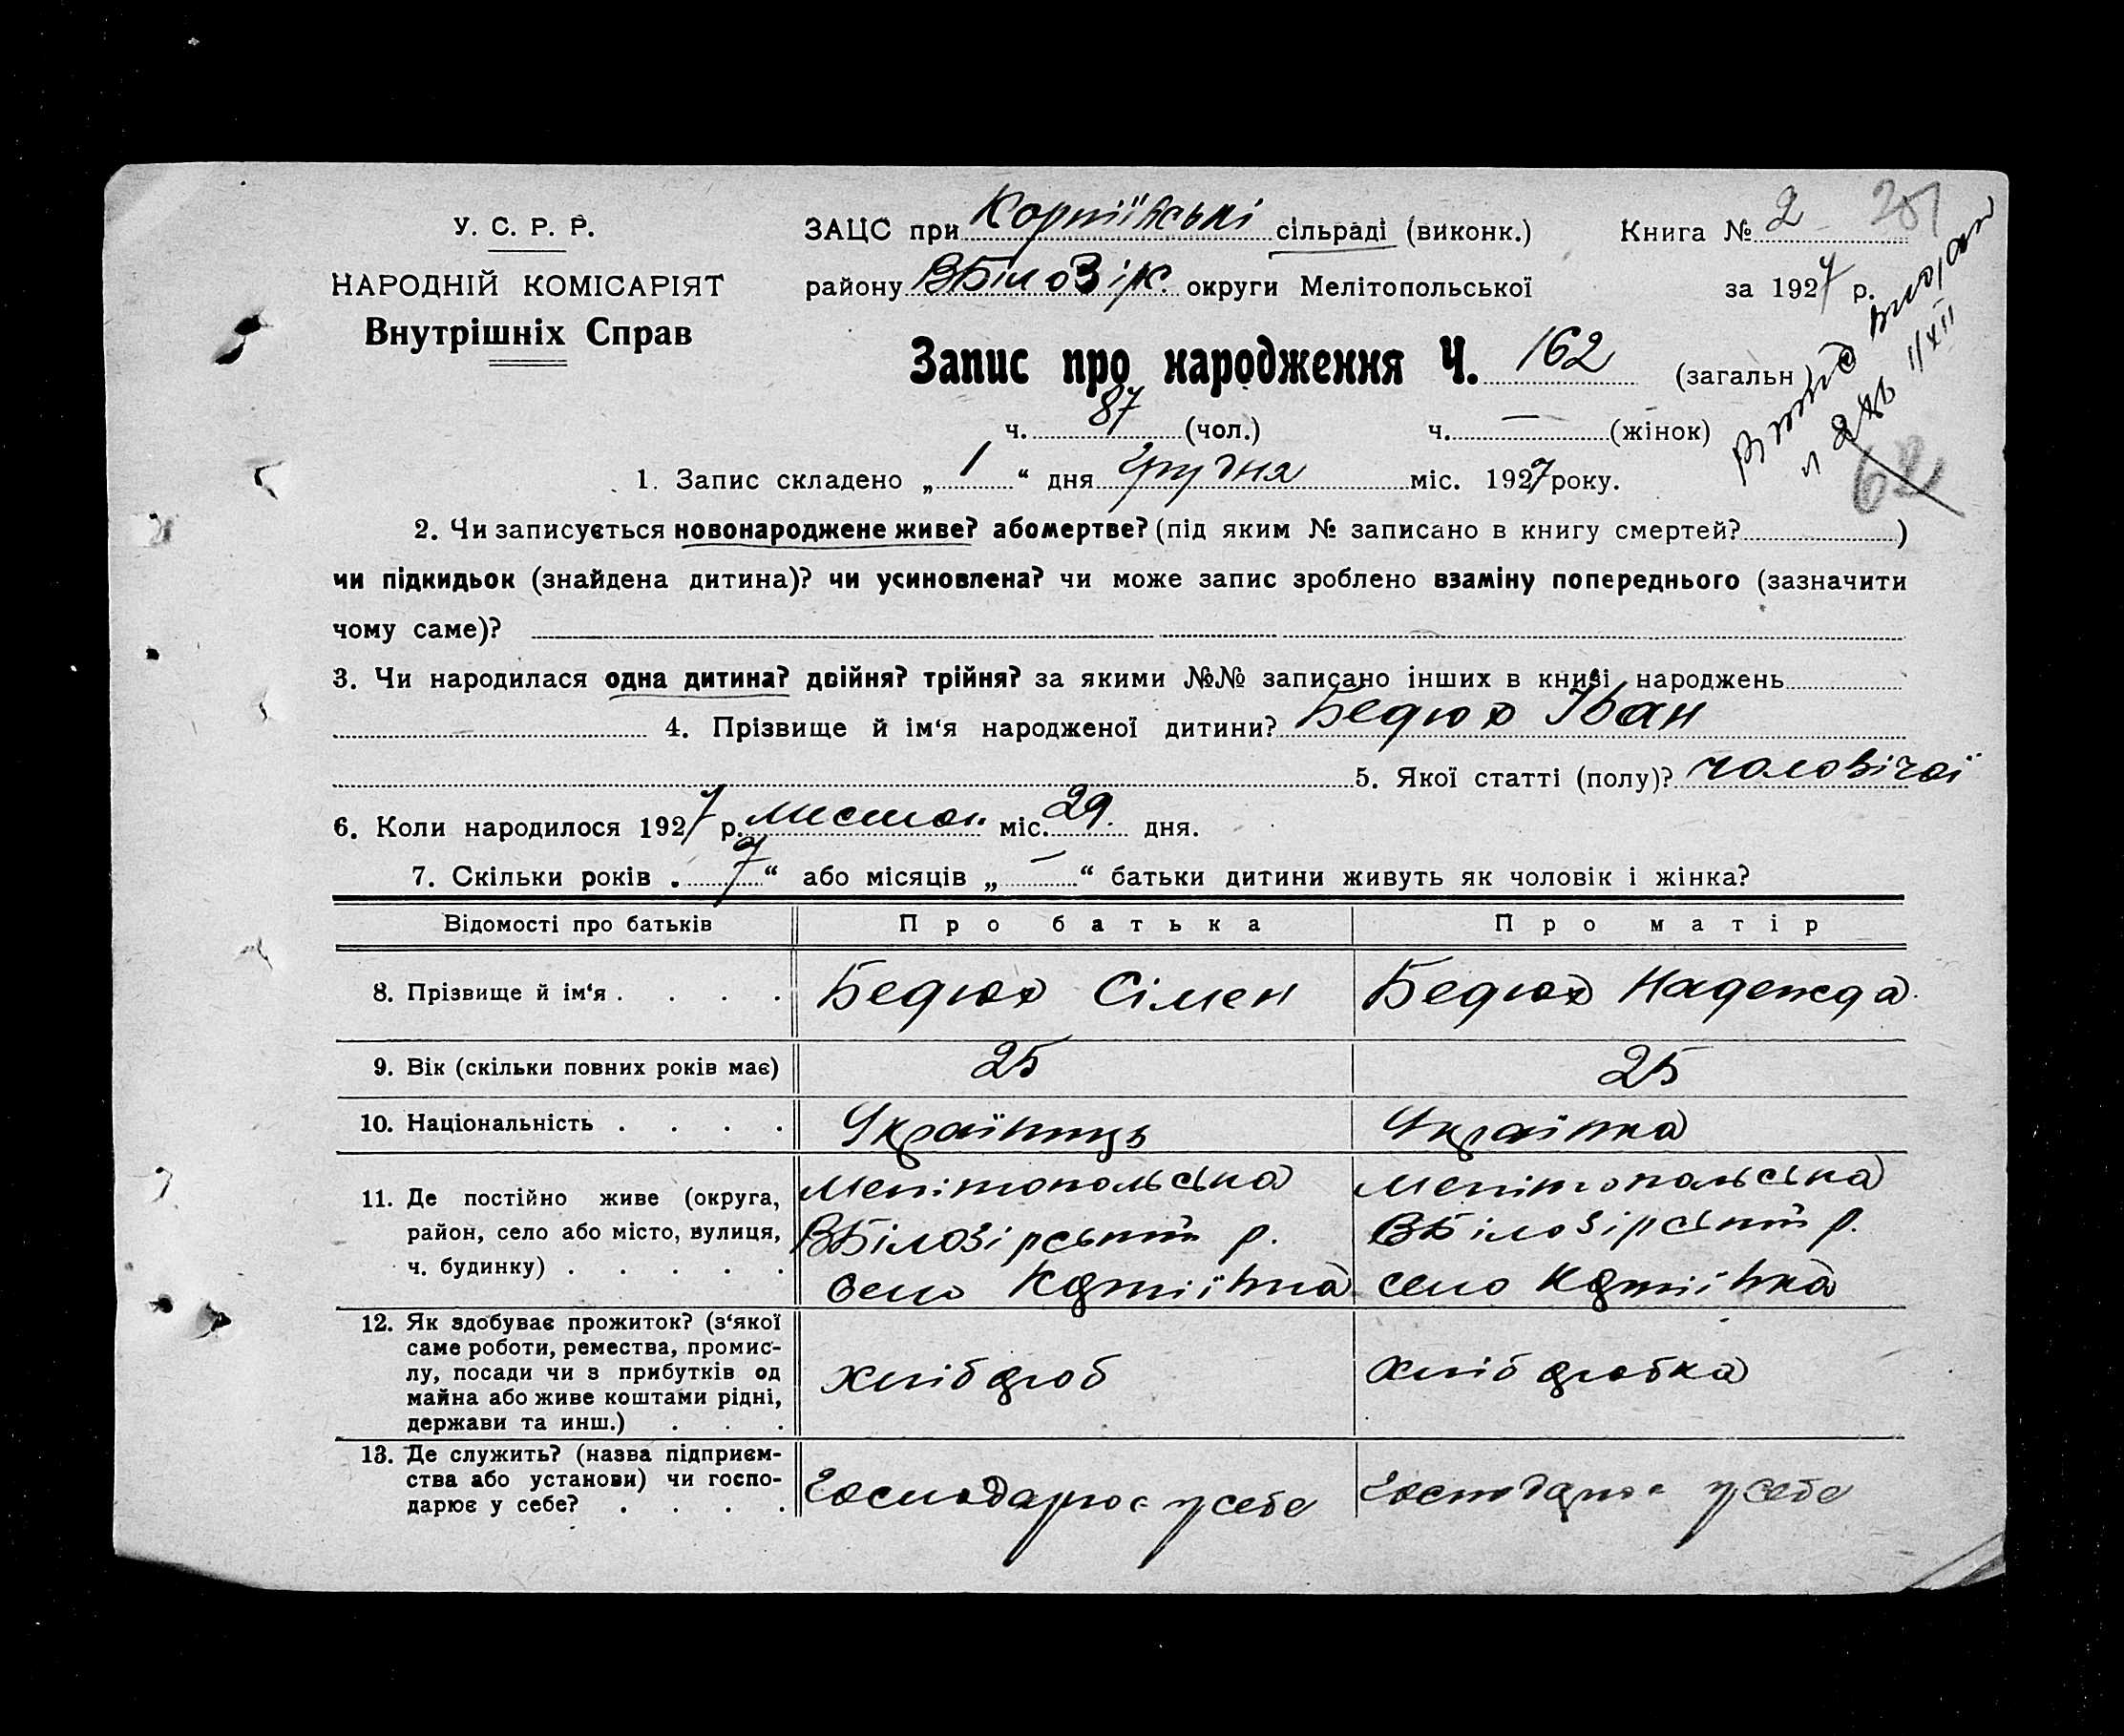 У. С. Р. Р.
НАРОДНІЙ КОМІСАРІЯТ
Внутрішніх Справ
ЗАЦС при Корніївські сільраді (виконк.)
Книга № 2
району ВБілозірк. округи Мелітопольської
за 1927 р.
Запис про народження Ч. 162 (загальн)
ч. 87 (чол.) ч. — (жінок)
62
1. Запис складено „ 1 “ дня Грудня міс. 1927 року.
2. Чи записується новонароджене живе? або мертве? (під яким № записано в книгу смертей? )
чи підкидьок (знайдена дитина)? чи усиновлена? чи може запис зроблено взаміну попереднього (зазначити
чому саме)?
3. Чи народилася одна дитина? двійня? трійня? за якими №№ записано інших в книзі народжень
4. Прізвище й ім‘я народженої дитини? Бедюх Іван
5. Якої статті (полу)? чоловічої
6. Коли народилося 1927 р. листоп. міс. 29. дня.
7. Скільки років „ 7 “ або місяців „ — “ батьки дитини живуть як чоловік і жінка?
Відомості про батьків Про батька Про матір
8. Прізвище й ім‘я . . . . Бедюх Сімен Бедюх Надежда
9. Вік (скільки повних років має) 25 25
10. Національність . . . . Українць Українка
11. Де постійно живе (округа, Мелітопольська Мелітопольська
район, село або місто, вулиця, ВБілозірський р. ВБілозірський р.
ч. будинку) . . . . . село Корніївка село Корніївка
12. Як здобуває прожиток? (з‘якої
саме роботи, ремества, промис-
лу, посади чи з прибутків од хлібороб хліборобка
майна або живе коштами рідні,
держави та инш.) . . .
13. Де служить? (назва підприєм-
ства або установи) чи госпо- Господарює у себе Господарює у себе
дарює у себе? . . . .